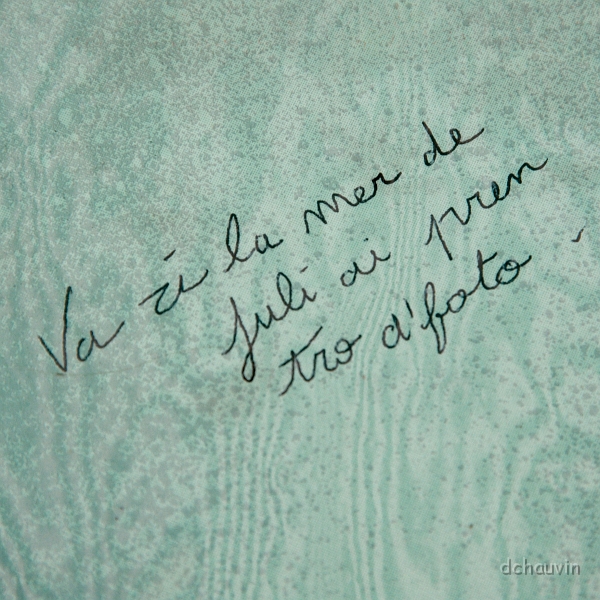 Va zi la mer de
juli ai pren
tro d'foto
dchauvin